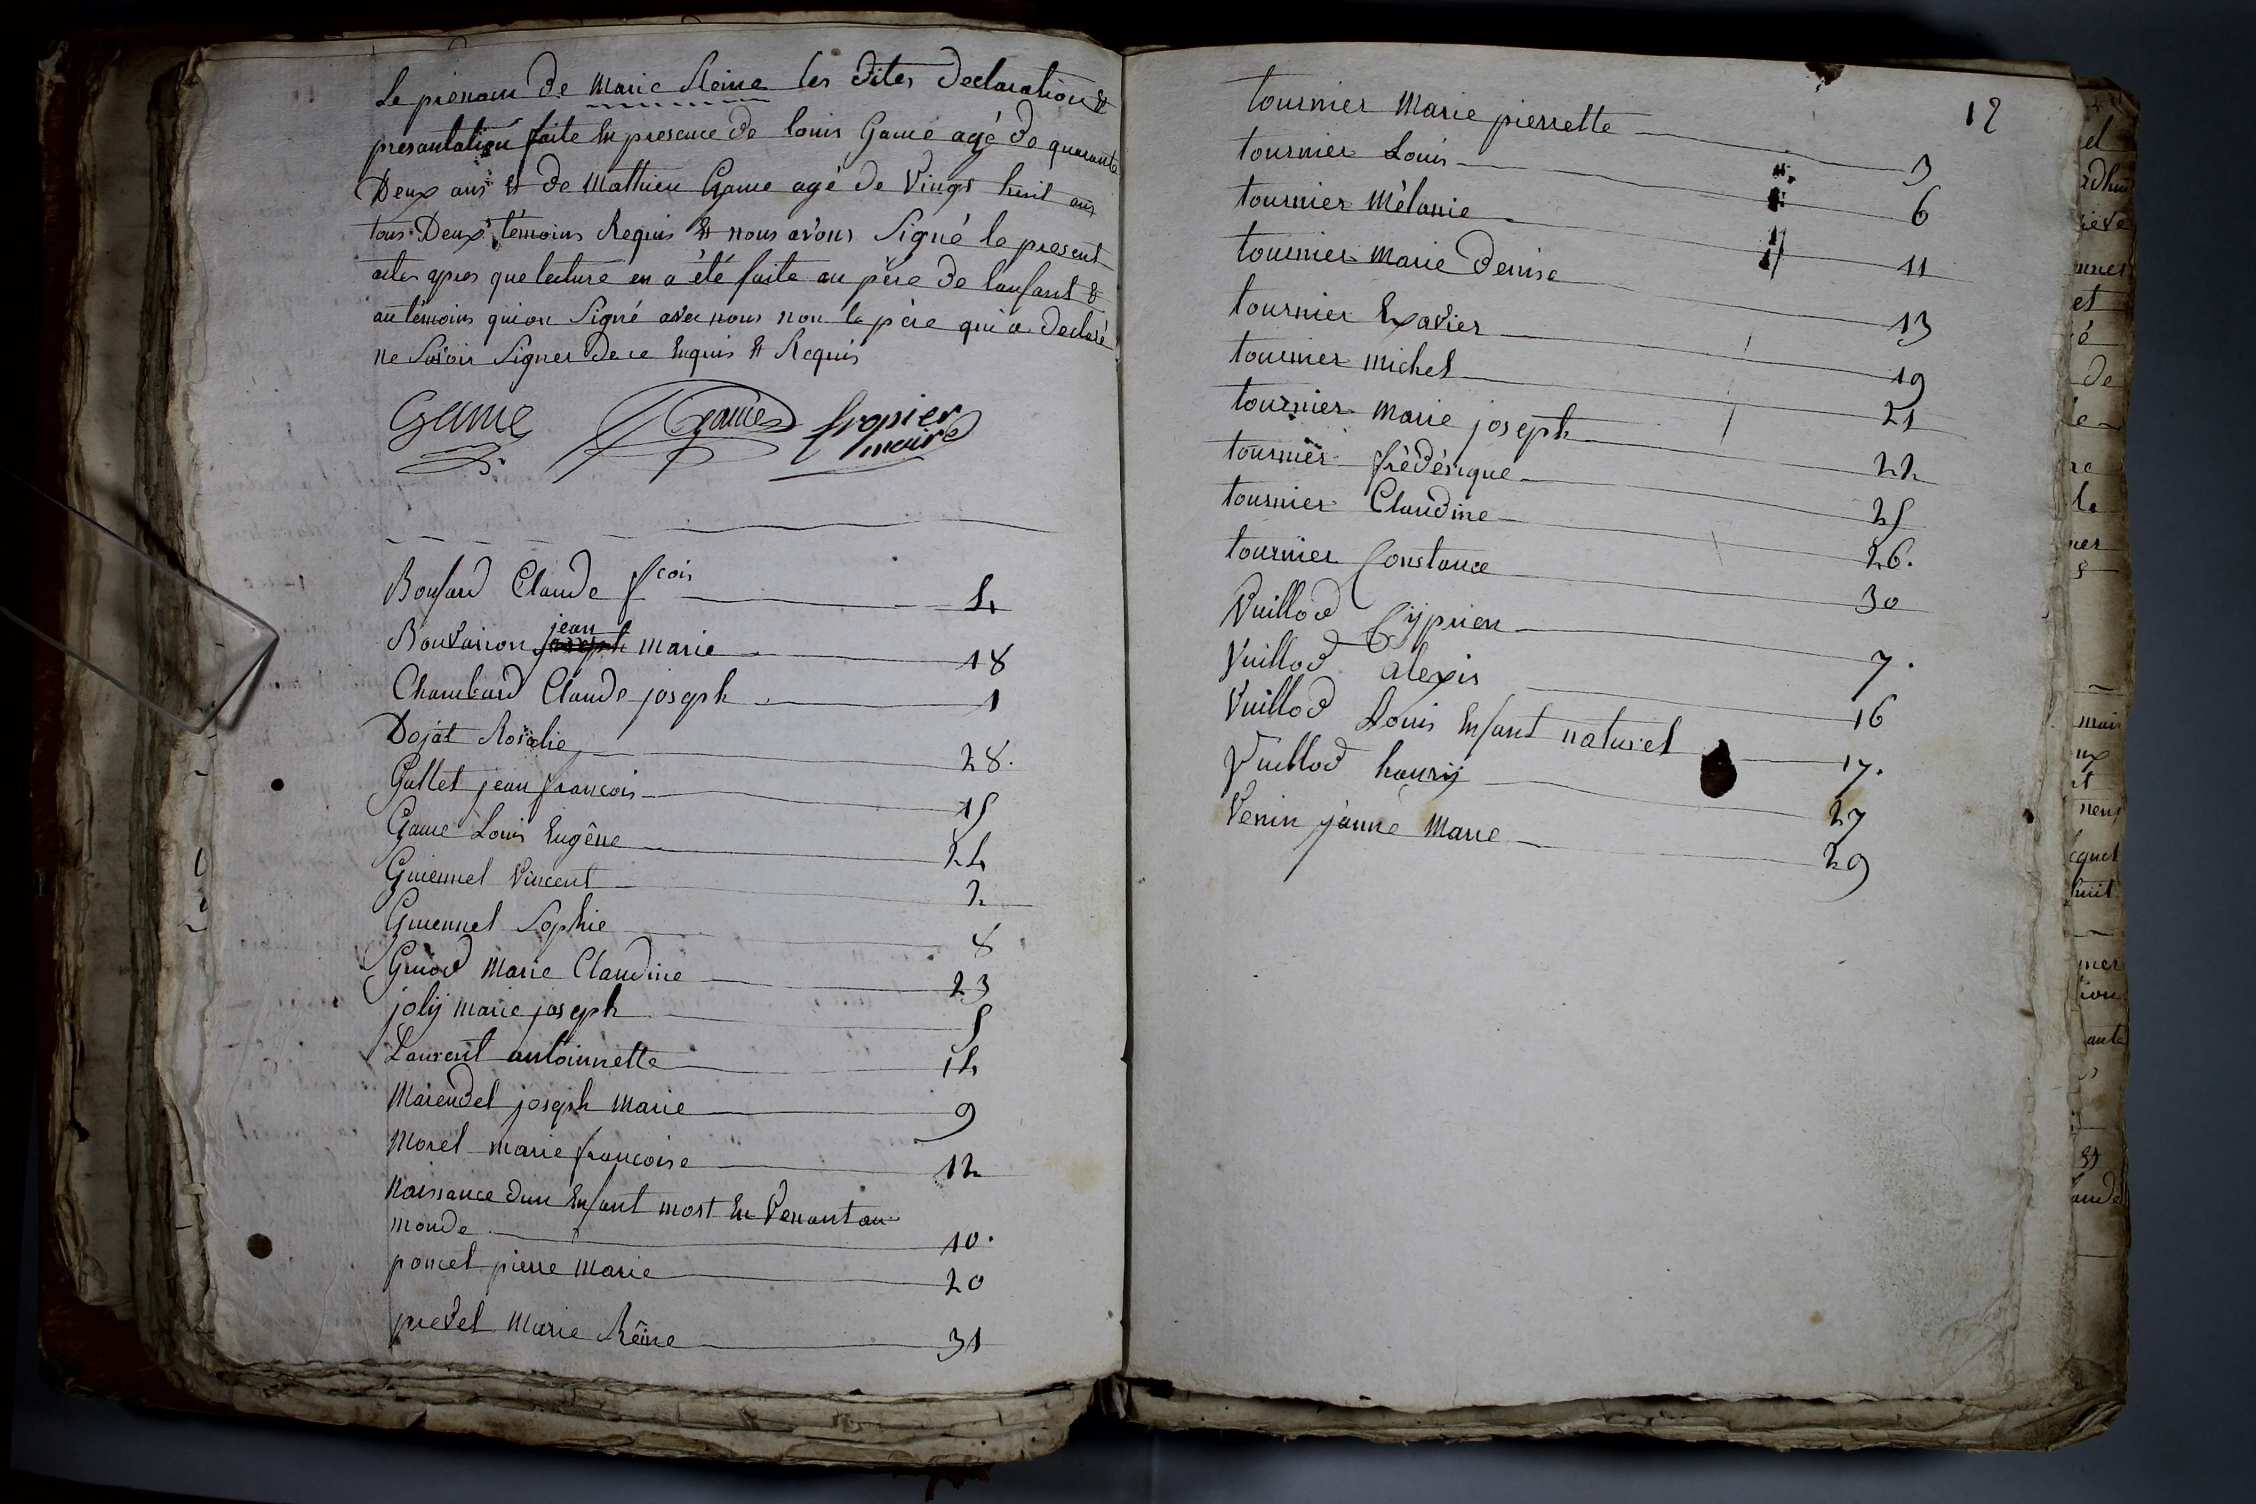 Le prénom de Marie Reine les dites declaration &
presantation faite En presence de louis Game agé de quarante
Deux ans & de Mathieu Game agé de Vingt huit ans
tous Deux témoins Requis & nous avons Signé le present
acte apres que lecture en a été faite au père de lanfant &
au témoins qui on Signé avec nous non le père qui a declaré
ne Savoir Signer de ce Enquis & Requis
Game Game fropier
maire
Boufard Claude fcois 4
jean
Bouvairon joseph marie 18
Chambard Claude joseph 1
Dojat Rosalie 28.
Gallet jean francois 15
Game Louis Eugêne 24
Guiennet Vincent 2
Guiennet Sophie 8
Gruod Marie Claudine 23
jolij marie joseph 5
Laurent antoinnette 14
Marendet joseph Marie 9
Morel marie francoise 12
Naissance dun Enfant mort En Venant au
monde 10.
poncet pierre Marie 20
prevet Marie Rêine 31
12
tournier Marie pierrette 3
tournier Louis 6
tournier Mélanie 11
tournier Marie Denise 13
tournier Exavier 19
tournier michel 21
tournier marie joseph 22
tournier frédérique 25
tournier Claudine 26.
tournier Constance 30
Vuillod Cijprien 7.
Vuillod alexis 16
Vuillod Louis Enfant naturel 17.
Vuillod hanrij 27
Venin jànne Marie 29